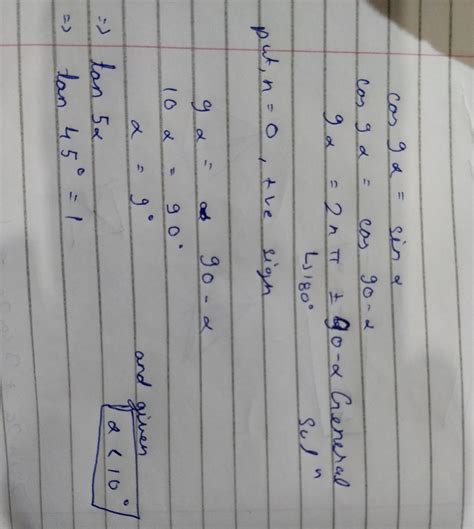 cos 9α = sin α
cos 9α = cos 90-α
9α = 2nπ ± 90-α General Solⁿ
↳ 180°
put, n = 0 , +ve sign
9α = 90-α
10 α = 90°
α = 9° and given α < 10°
⇒ tan 5α
⇒ tan 45° = 1